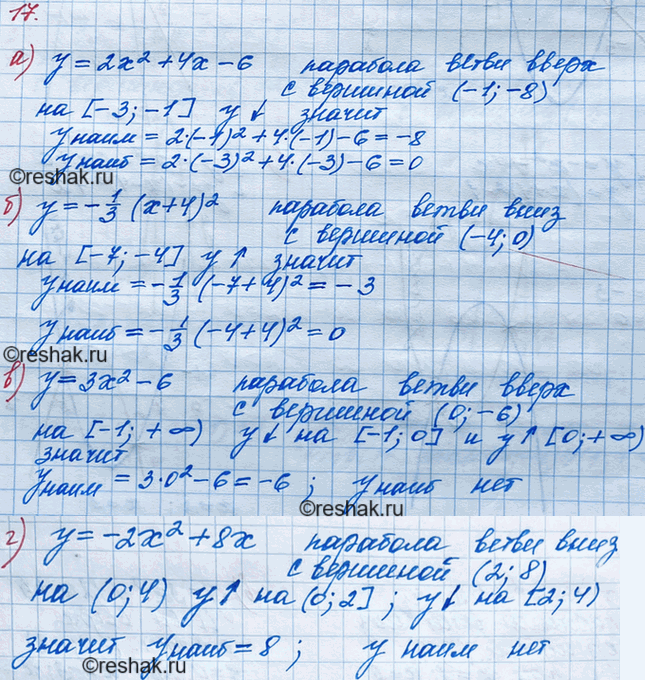 17.
а) y = 2x² + 4x - 6 парабола ветви вверх
с вершиной (-1; -8)
на [-3; -1] y ↓ значит
y наим = 2·(-1)² + 4·(-1) - 6 = -8
y наиб = 2·(-3)² + 4·(-3) - 6 = 0
©reshak.ru
б) y = -1/3 (x+4)² парабола ветви вниз
с вершиной (-4; 0)
на [-7; -4] y ↑ значит
y наим = -1/3 (-7+4)² = -3
y наиб = -1/3 (-4+4)² = 0
©reshak.ru
в) y = 3x² - 6 парабола ветви вверх
с вершиной (0; -6)
на [-1; +∞) y↓ на [-1; 0] и y↑ [0; +∞)
значит
y наим = 3·0² - 6 = -6 ; y наиб нет
©reshak.ru
г) y = -2x² + 8x парабола ветви вниз
с вершиной (2; 8)
на (0; 4) y↑ на (0; 2] ; y↓ на [2; 4)
значит y наиб = 8 ; y наим нет
©reshak.ru